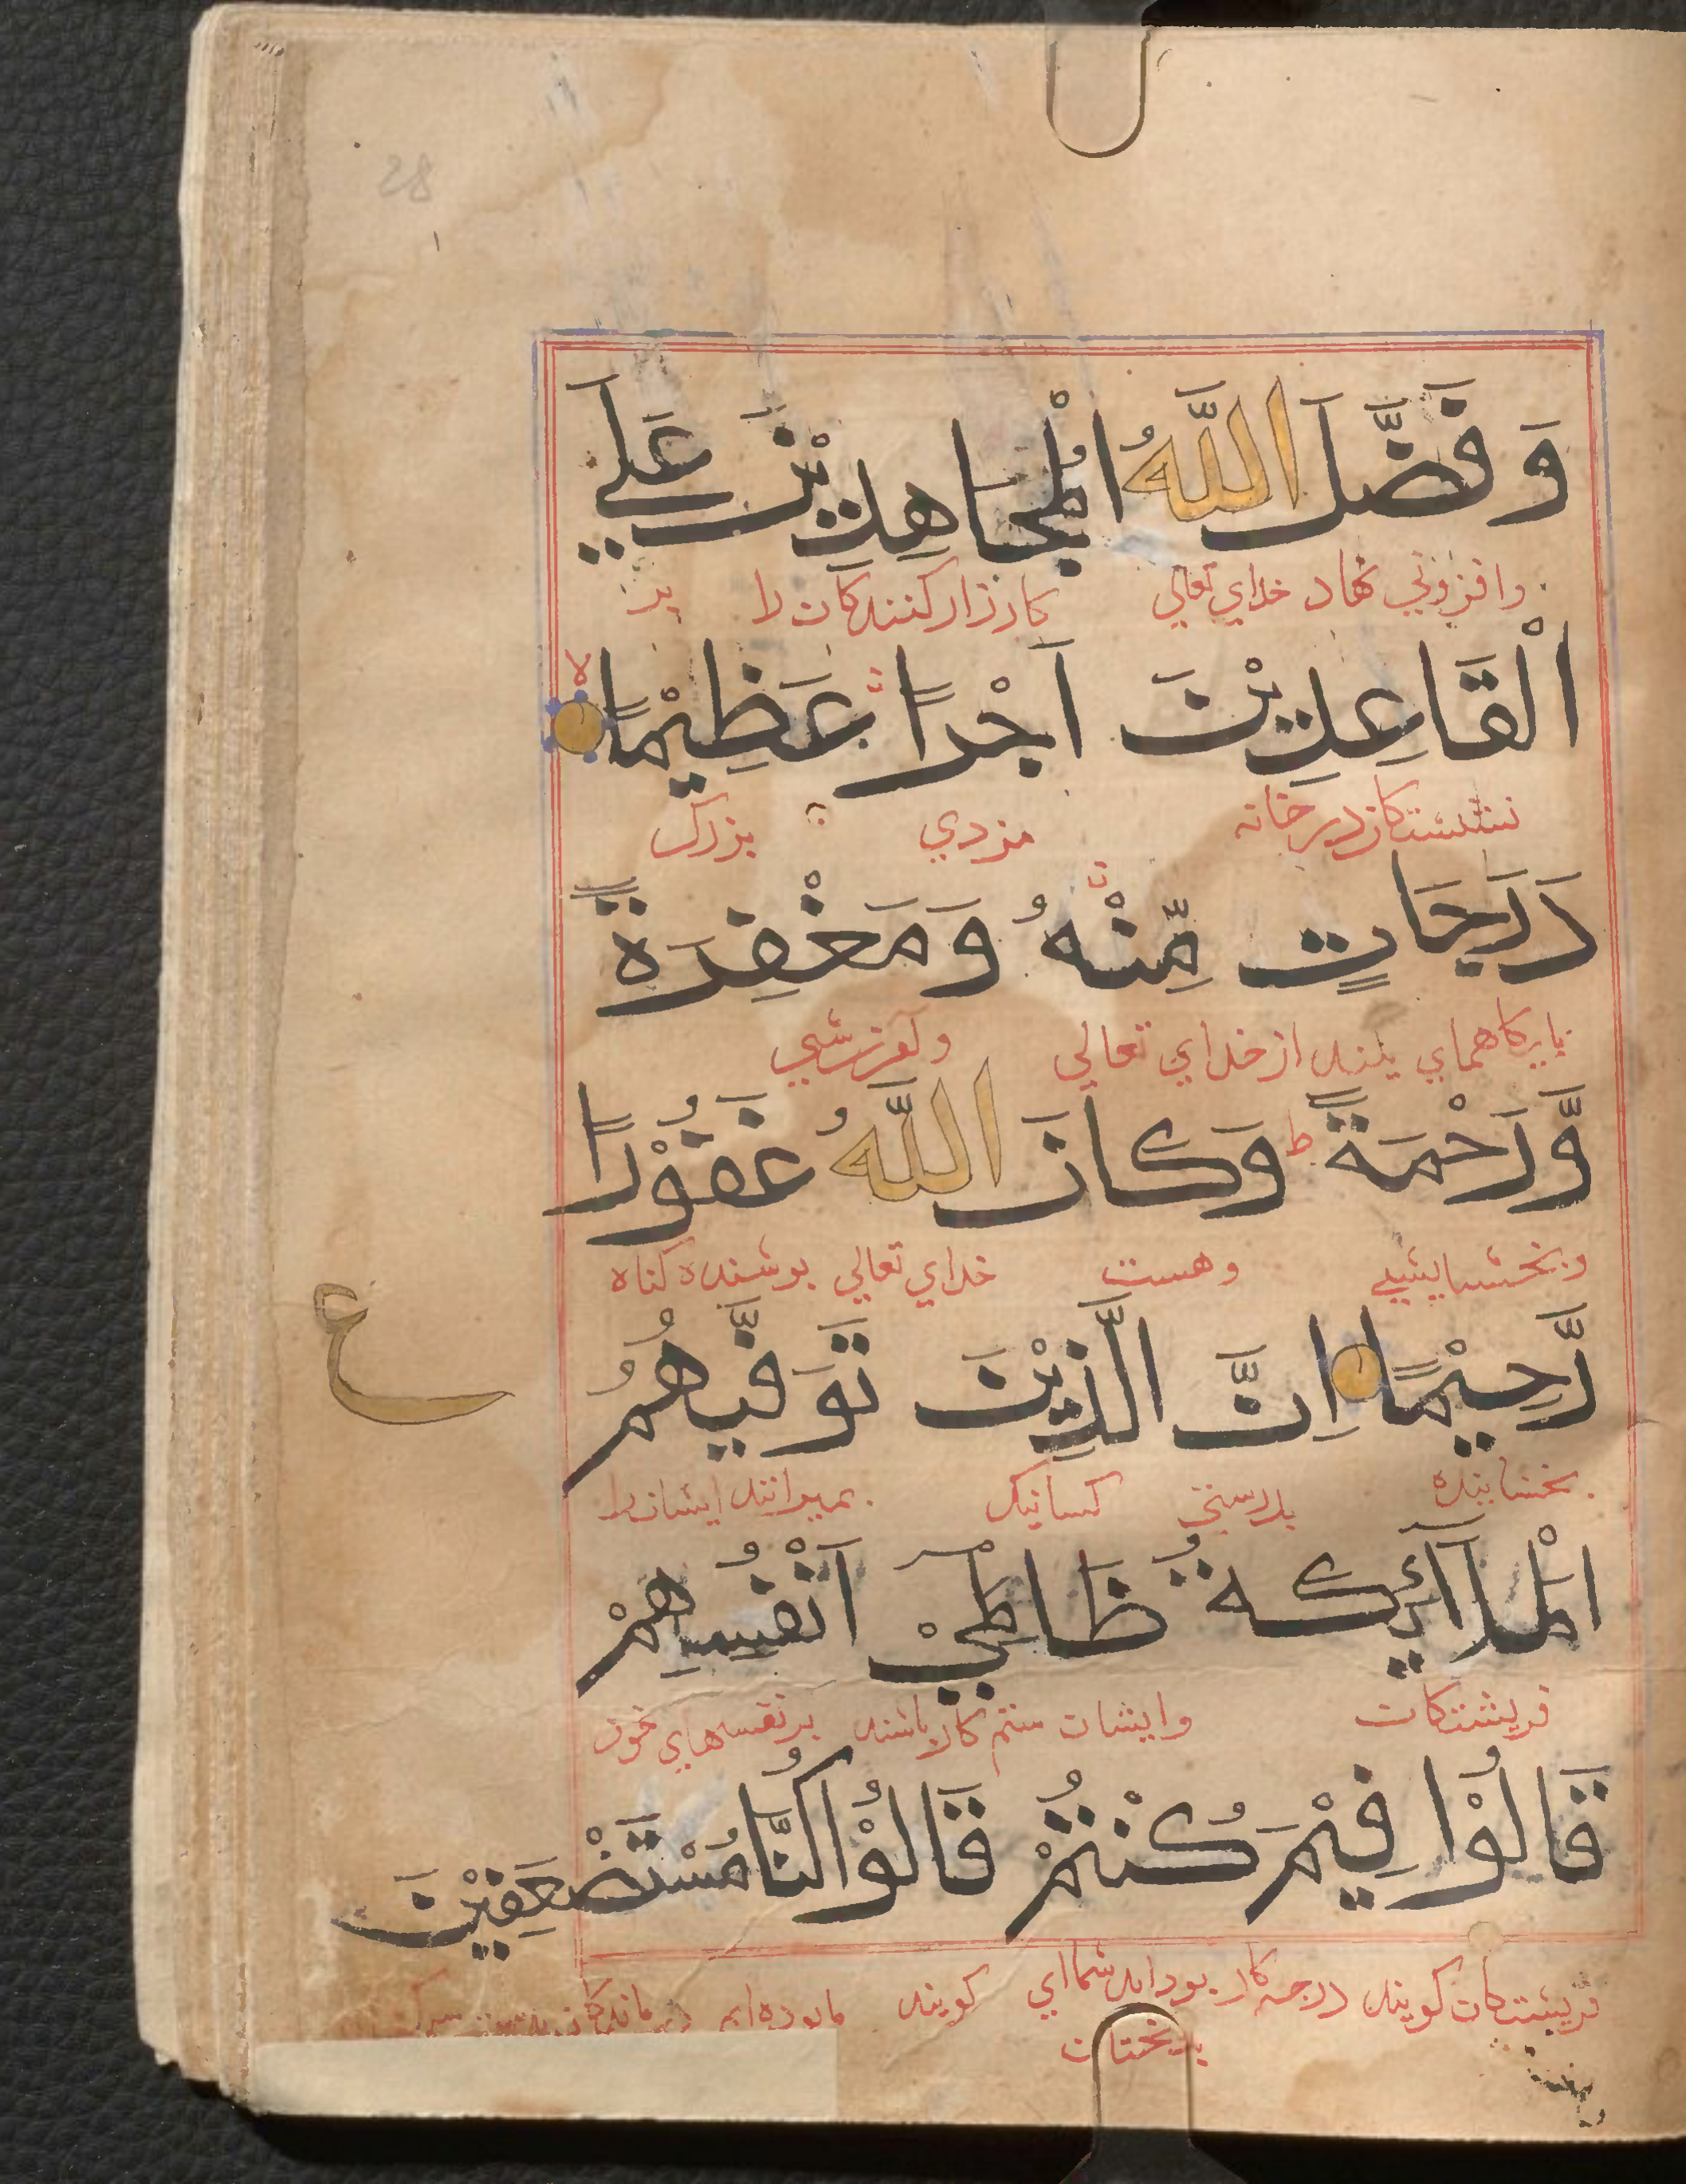 28
وَفَضَّلَ اللَّهُ الْمُجَاهِدِيْنَ عَلَي
وافزوني نهاد خداي تعالي كارزار كنندكان را بر
الْقَاعِدِيْنَ اَجْرًا عَظِيْمًا لا
نشستكان در خانه مزدي بزرك
دَرَجَاتٍ مِّنْهُ وَمَغْفِرَةً
پايكاهماي بلند از خداي تعالي وآمرزشي
وَّرَحْمَةً ط وَكَانَ اللَّهُ غَفُوْرًا
وبخشايشي وهست خداي تعالي پوشنده كناه
رَّحِيْمًا اِنَّ الَّذِيْنَ تَوَفّٰيهُمُ
بخشاينده بدرستي كسانيك بميرانند ايشانرا
ع
الْمَلَآئِكَةُ ظَالِمِيْ اَنْفُسِهِمْ
فريشتكان وايشان ستم كار باشند بر نفسهاي خود
قَالُوْا فِيْمَ كُنْتُمْ قَالُوْا كُنَّا مُسْتَضْعَفِيْنَ
فريشتكان كويند درچه كار بودايد شما اي كويند ما بوده ايم
بدبختان